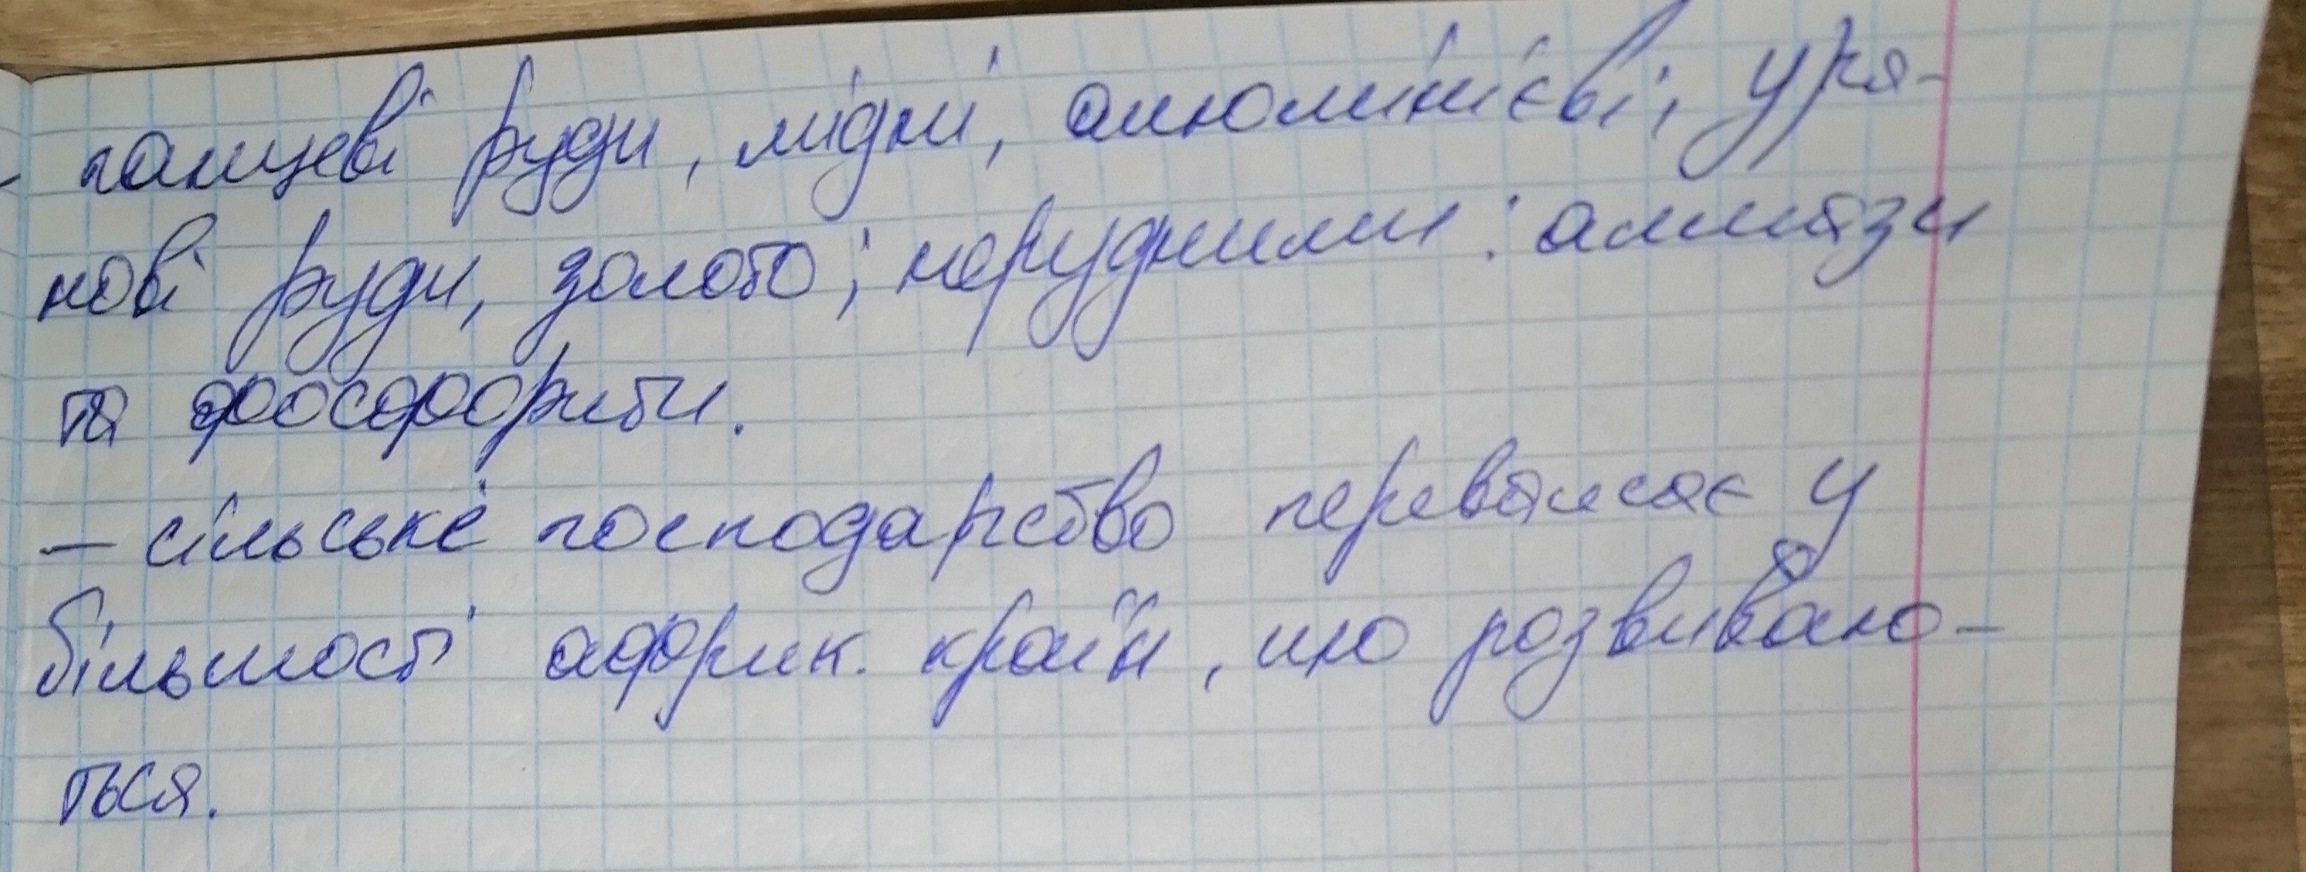 ганцеві руди, мідні, алюмінієві, ура-
нові руди, золото; нерудними: алмази
та фосфорити.
– сільське господарство переважає у
більшості африк. країн, що розвиваю-
ться.